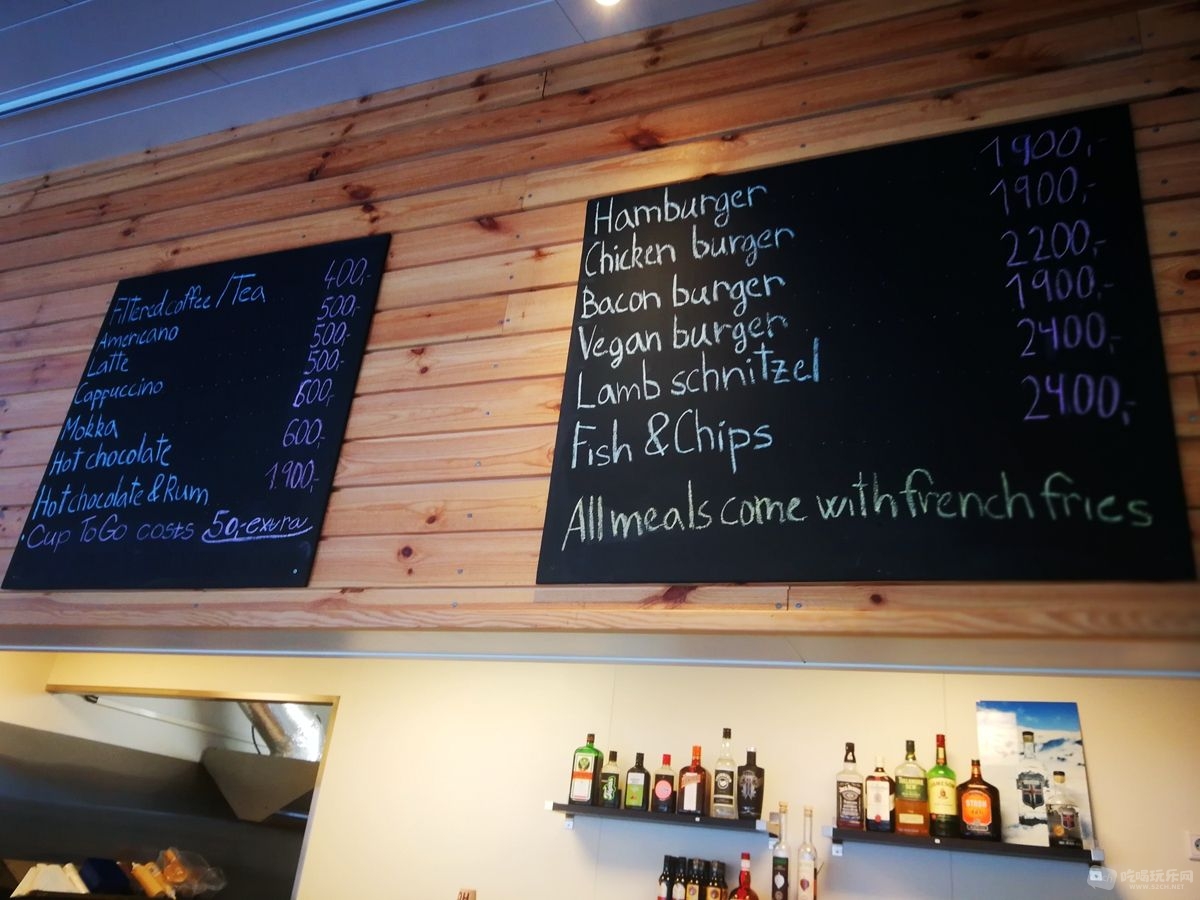 Filtered coffee / Tea 400,-
Americano 500,-
Latte 500,-
Cappuccino 500,-
Mokka 600,-
Hot chocolate 600,-
Hot chocolate & Rum 1.900,-
Cup To Go costs 50,- extra
Hamburger 1900,-
Chicken burger 1900,-
Bacon burger 2200,-
Vegan burger 1900,-
Lamb schnitzel 2400,-
Fish & Chips 2400,-
All meals come with french fries
STROH
吃喝玩乐网
WWW.52CH.NET